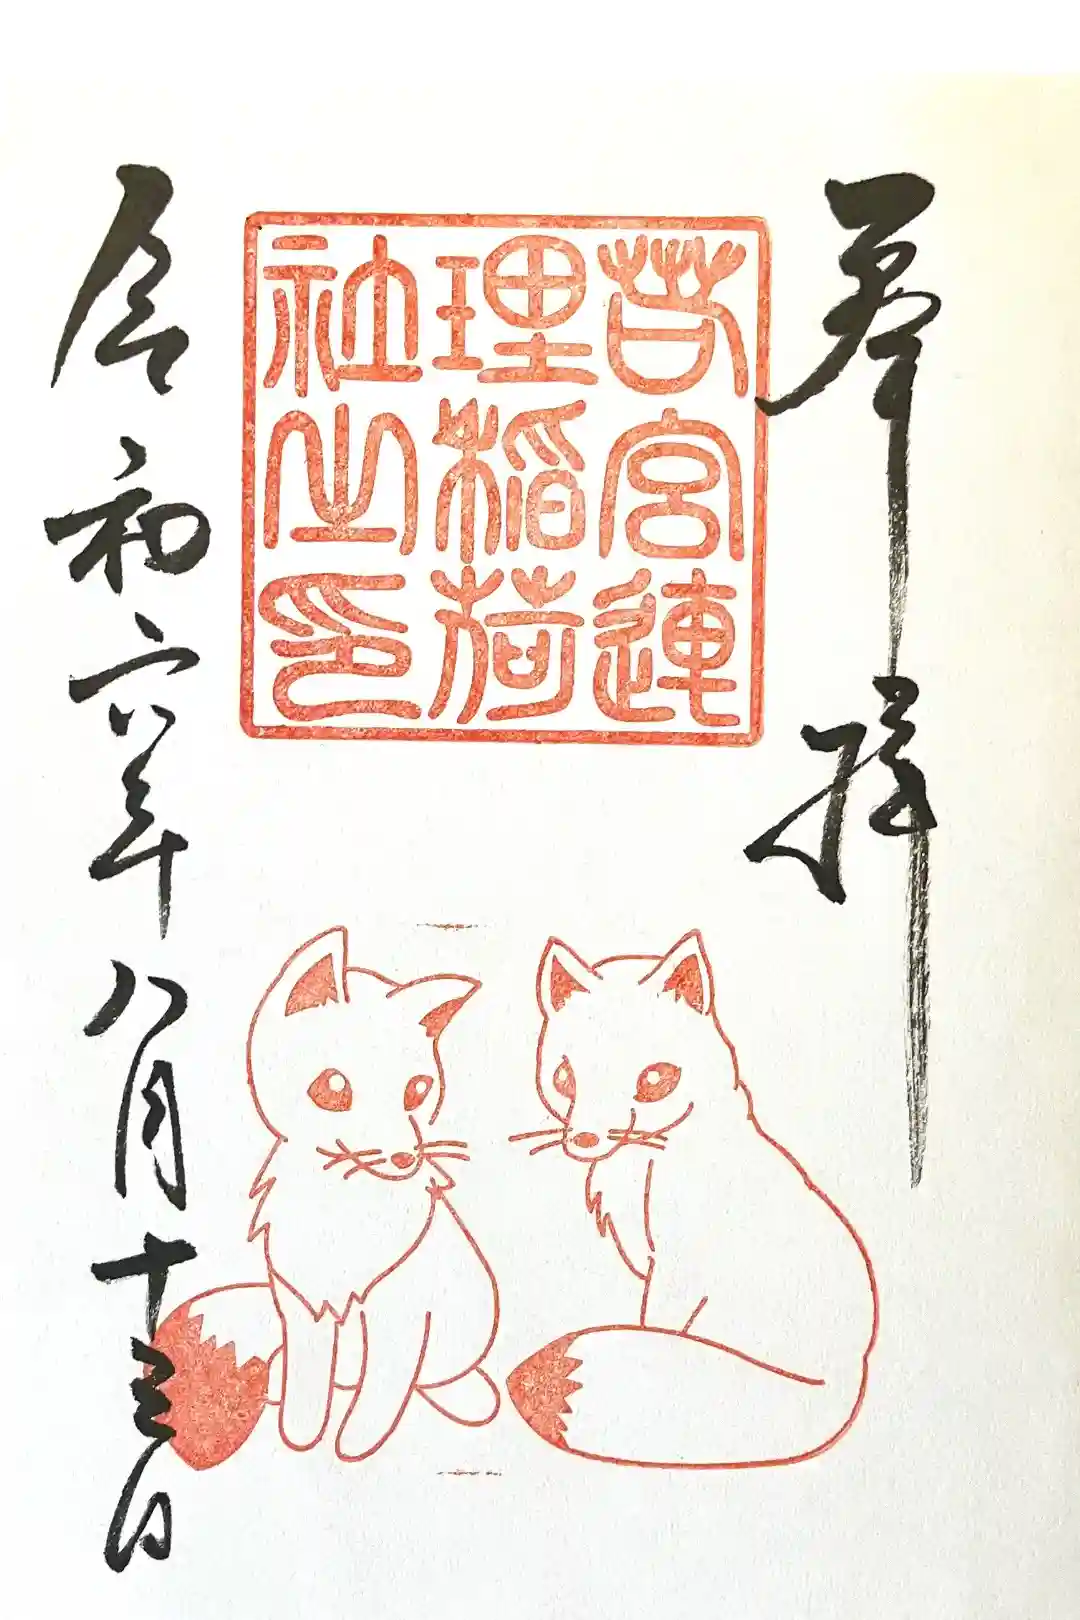 奉拝
若宮連
理稲荷
社之印
令和六年八月十三日